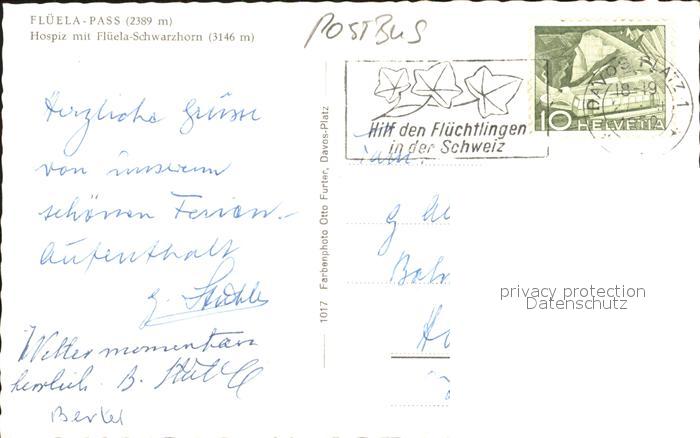 FLÜELA-PASS (2389 m)
Hospiz mit Flüela-Schwarzhorn (3146 m)
POSTBUS
Herzliche Grüsse
von unserem
schönen Ferien-
aufenthalt
Wetter momentan
herrlich. B.
1017 Farbenphoto Otto Furter, Davos-Platz
Hilf den Flüchtlingen
in der Schweiz
10 HELVETIA
DAVOS PLATZ 1
18-19
privacy protection
Datenschutz